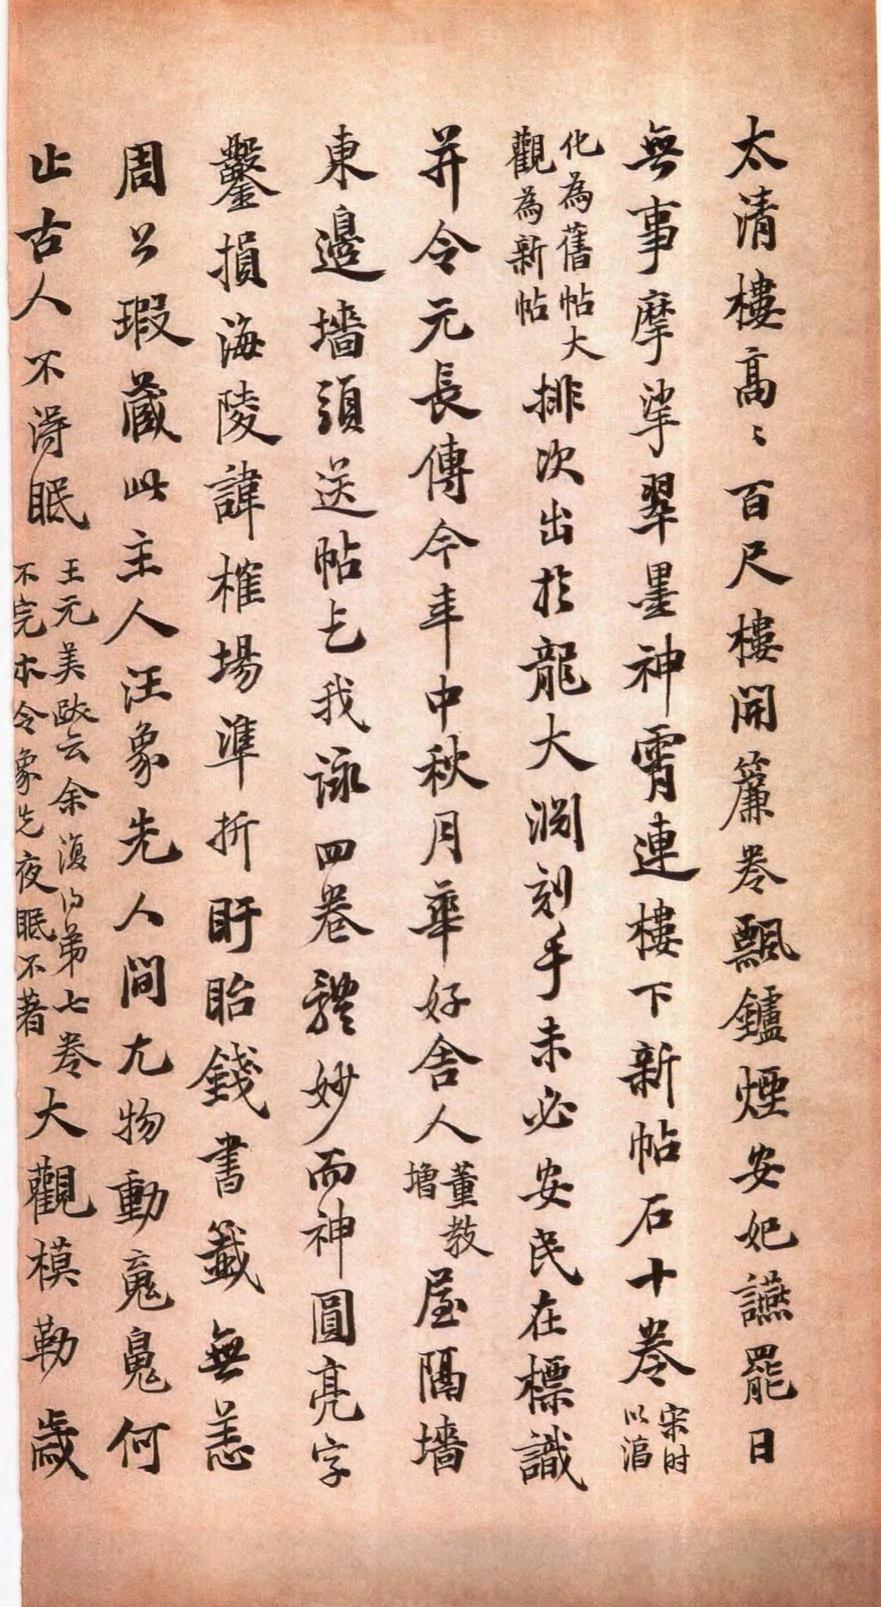 太清樓高〻百尺樓開簾卷飄鑪煙安妃讌罷日
無事摩挲翠墨神霄連樓下新帖石十卷宋时以淳
化為舊帖大觀為新帖排次出於龍大淵刻手未必安民在標識
并令元長傳今年中秋月華好舍人董教增屋隔墻
東邊墻頭送帖乞我詠四卷體妙而神圓亮字
鑿損海陵諱榷場準折盱眙錢書籤無恙
周公瑕藏此主人汪象先人間尤物動鬼鬼何
止古人不得眠王元美跋云余復得第七卷不完本令象先夜眠不著大觀模勒歲